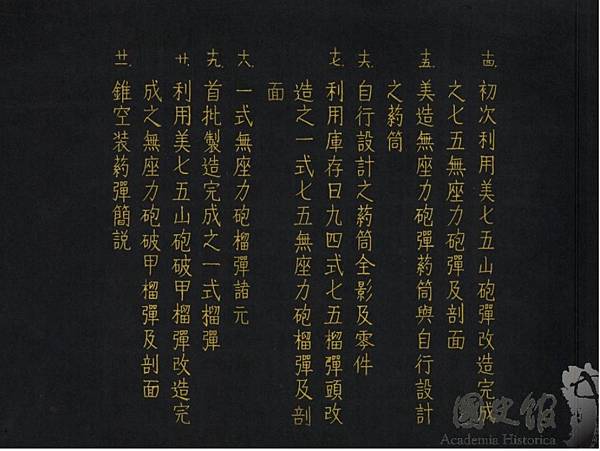 十四 初次利用美七五山砲彈改造完成
之七五無座力砲彈及剖面
十五 美造無座力砲彈葯筒與自行設計
之葯筒
十六 自行設計之葯筒全影及零件
十七 利用庫存日九四式七五榴彈頭改
造之一式七五無座力砲榴彈及剖
面
十八 一式無座力砲榴彈諸元
十九 首批製造完成之一式榴彈
廿 利用美七五山砲破甲榴彈改造完
成之無座力砲破甲榴彈及剖面
廿一 錐空装葯彈簡説
國史館
Academia Historica